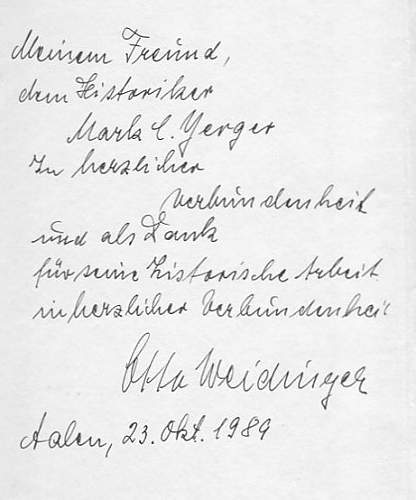 Meinem Freund,
dem Historiker
Mark C. Yerger
In herzlicher
Verbundenheit
und als Dank
für seine historische Arbeit
in herzlicher Verbundenheit
Otto Weidinger
Aalen, 23. Okt. 1989